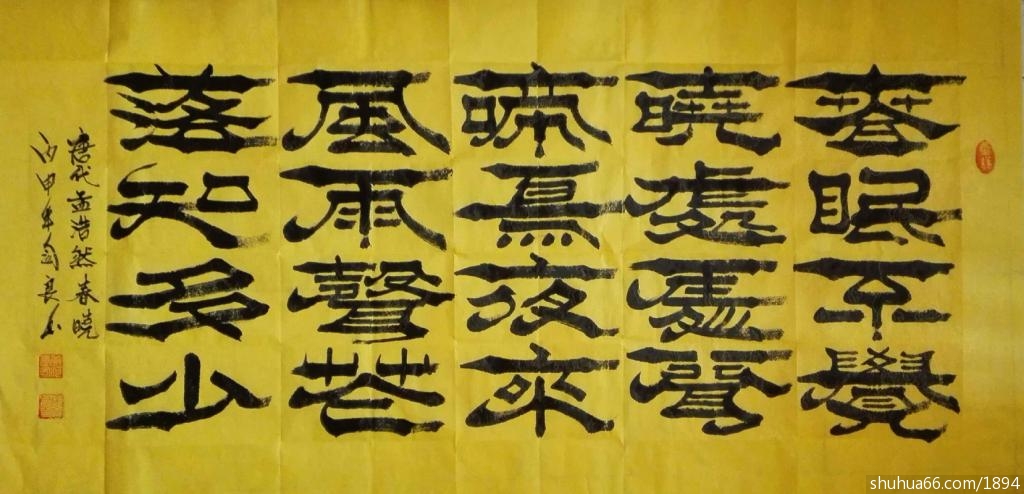 春眠不覺
曉處處聞
啼鳥夜來
風雨聲花
落知多少
唐代孟浩然春晓
甲午
shuhua66.com/1894